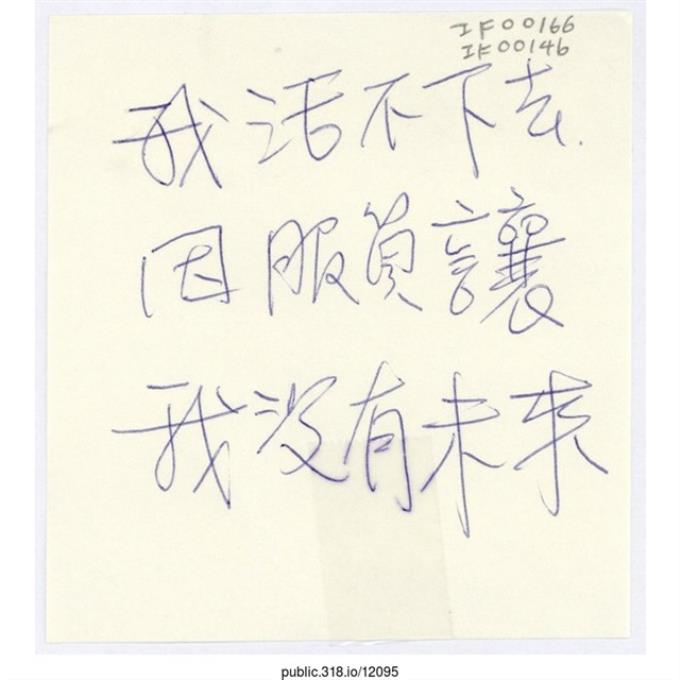 IF00166
IF00146
我活不下去.
因服貿讓
我没有未来
public.318.io/12095